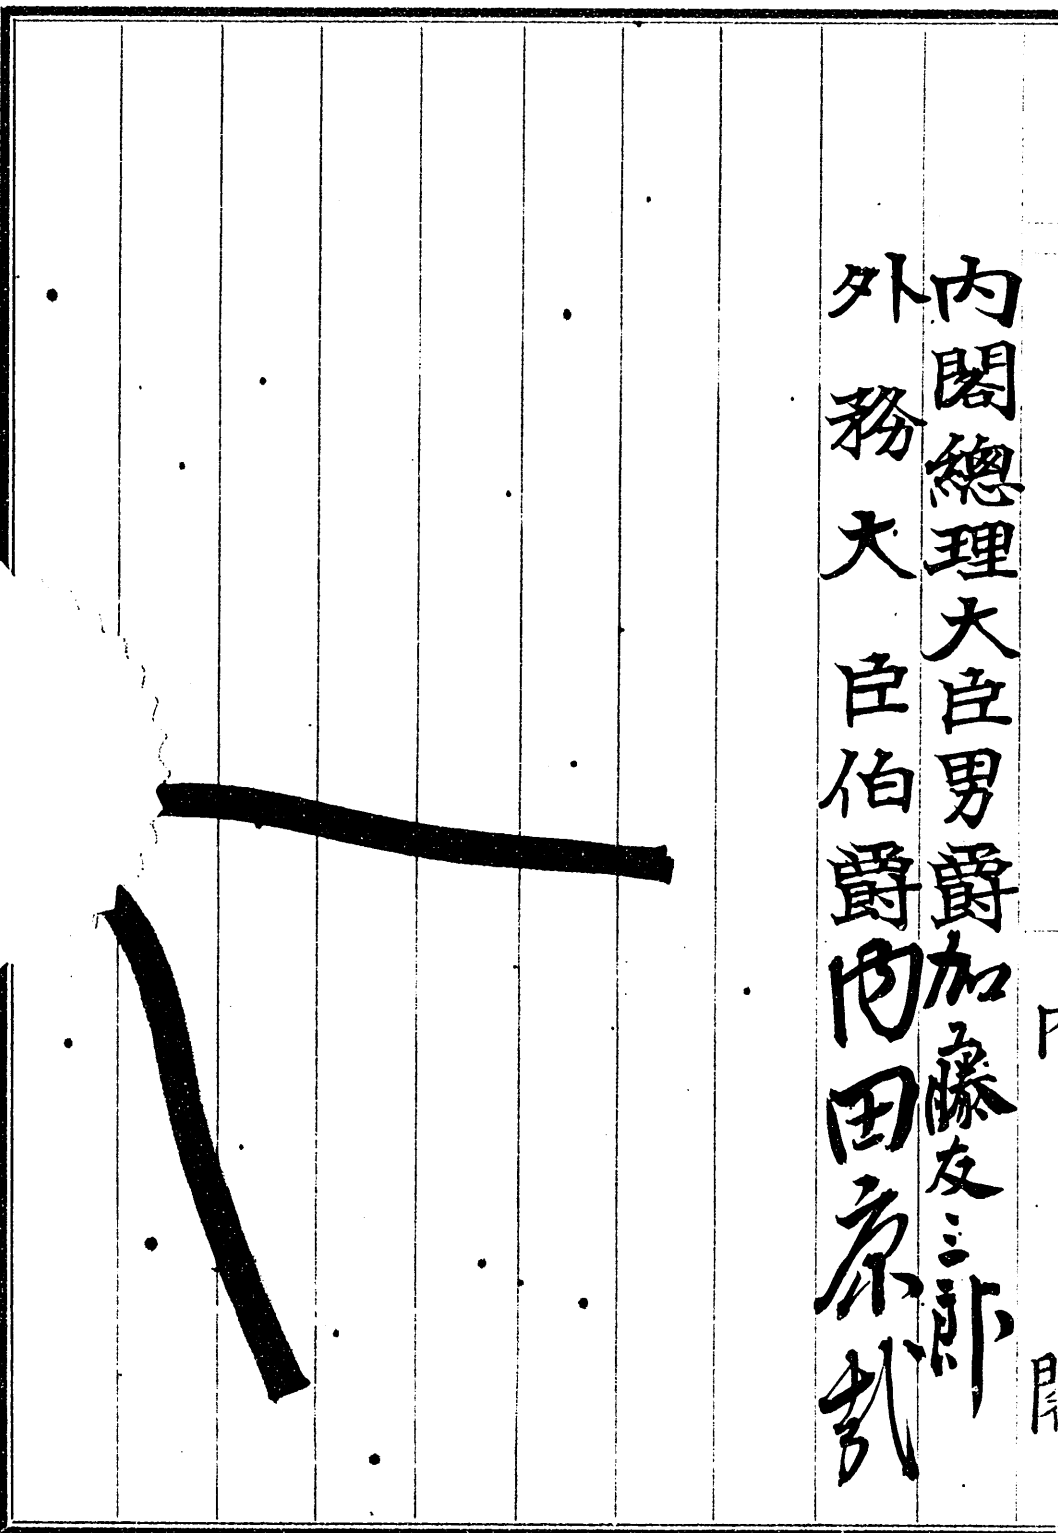 內閣總理大臣男爵加藤友三郎
外務大臣伯爵內田康哉